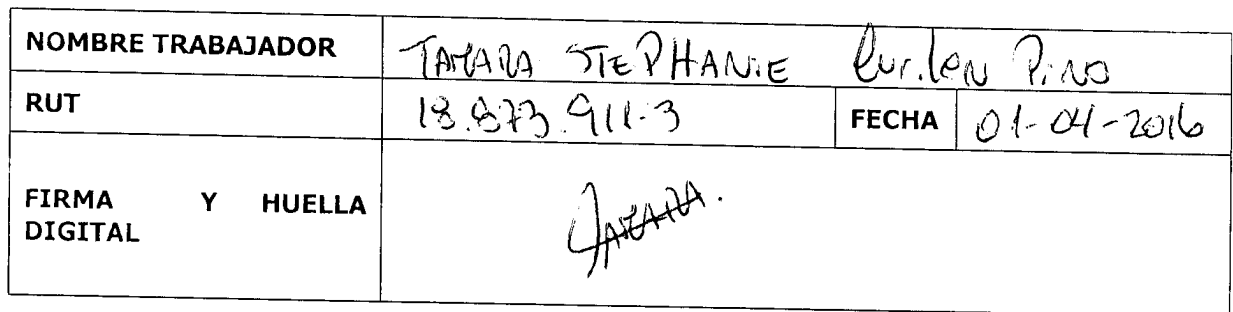 NOMBRE TRABAJADOR TAMARA STEPHANIE Curilen Pino
RUT 18.873.911-3 FECHA 01-04-2016
FIRMA Y HUELLA
DIGITAL
TAMARA.